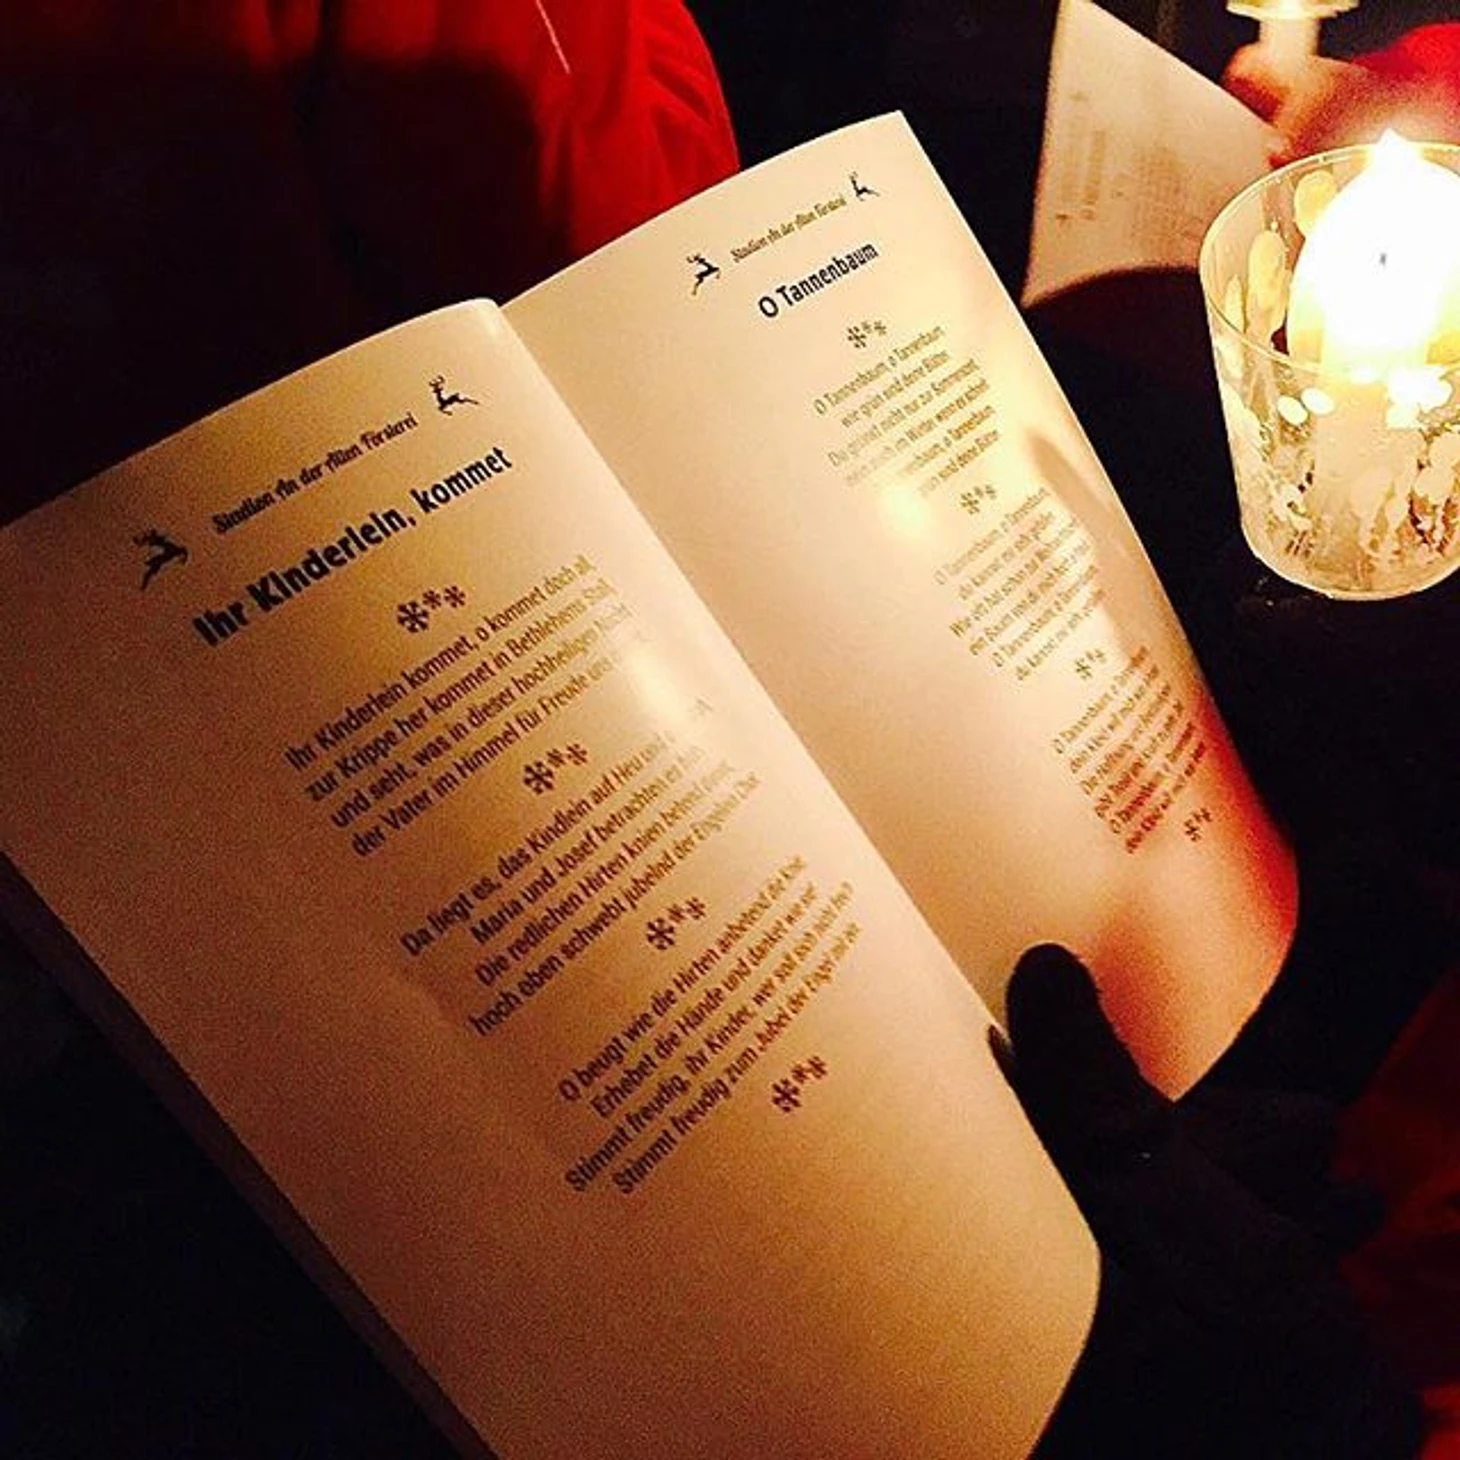 Stadion An der Alten Försterei
Ihr Kinderlein, kommet
Ihr Kinderlein kommet, o kommet doch all,
zur Krippe her kommet in Bethlehems Stall,
und seht, was in dieser hochheiligen Nacht
der Vater im Himmel für Freude uns
Da liegt es, das Kindlein auf Heu und
Maria und Josef betrachten es froh,
Die redlichen Hirten knien betend davor,
hoch oben schwebt jubelnd der Engelein Chor
O beugt wie die Hirten anbetend die Knie
Erhebet die Hände und danket wie sie
Stimmt freudig, ihr Kinder, wer soll sich nicht freu'n
Stimmt freudig zum Jubel der Engel mit ein
Stadion An der Alten Försterei
O Tannenbaum
O Tannenbaum, o Tannenbaum
wie grün sind deine Blätter
Du grünst nicht nur zur Sommerzeit
nein auch im Winter wenn es schneit
o Tannenbaum
grün sind deine Blätter
O Tannenbaum, o Tannenbaum
du kannst mir sehr gefallen
Wie oft hat schon zur Weihnachtszeit
ein Baum von dir mich hoch erfreut
O Tannenbaum, o Tannenbaum
du kannst mir sehr gefallen
O Tannenbaum, o Tannenbaum